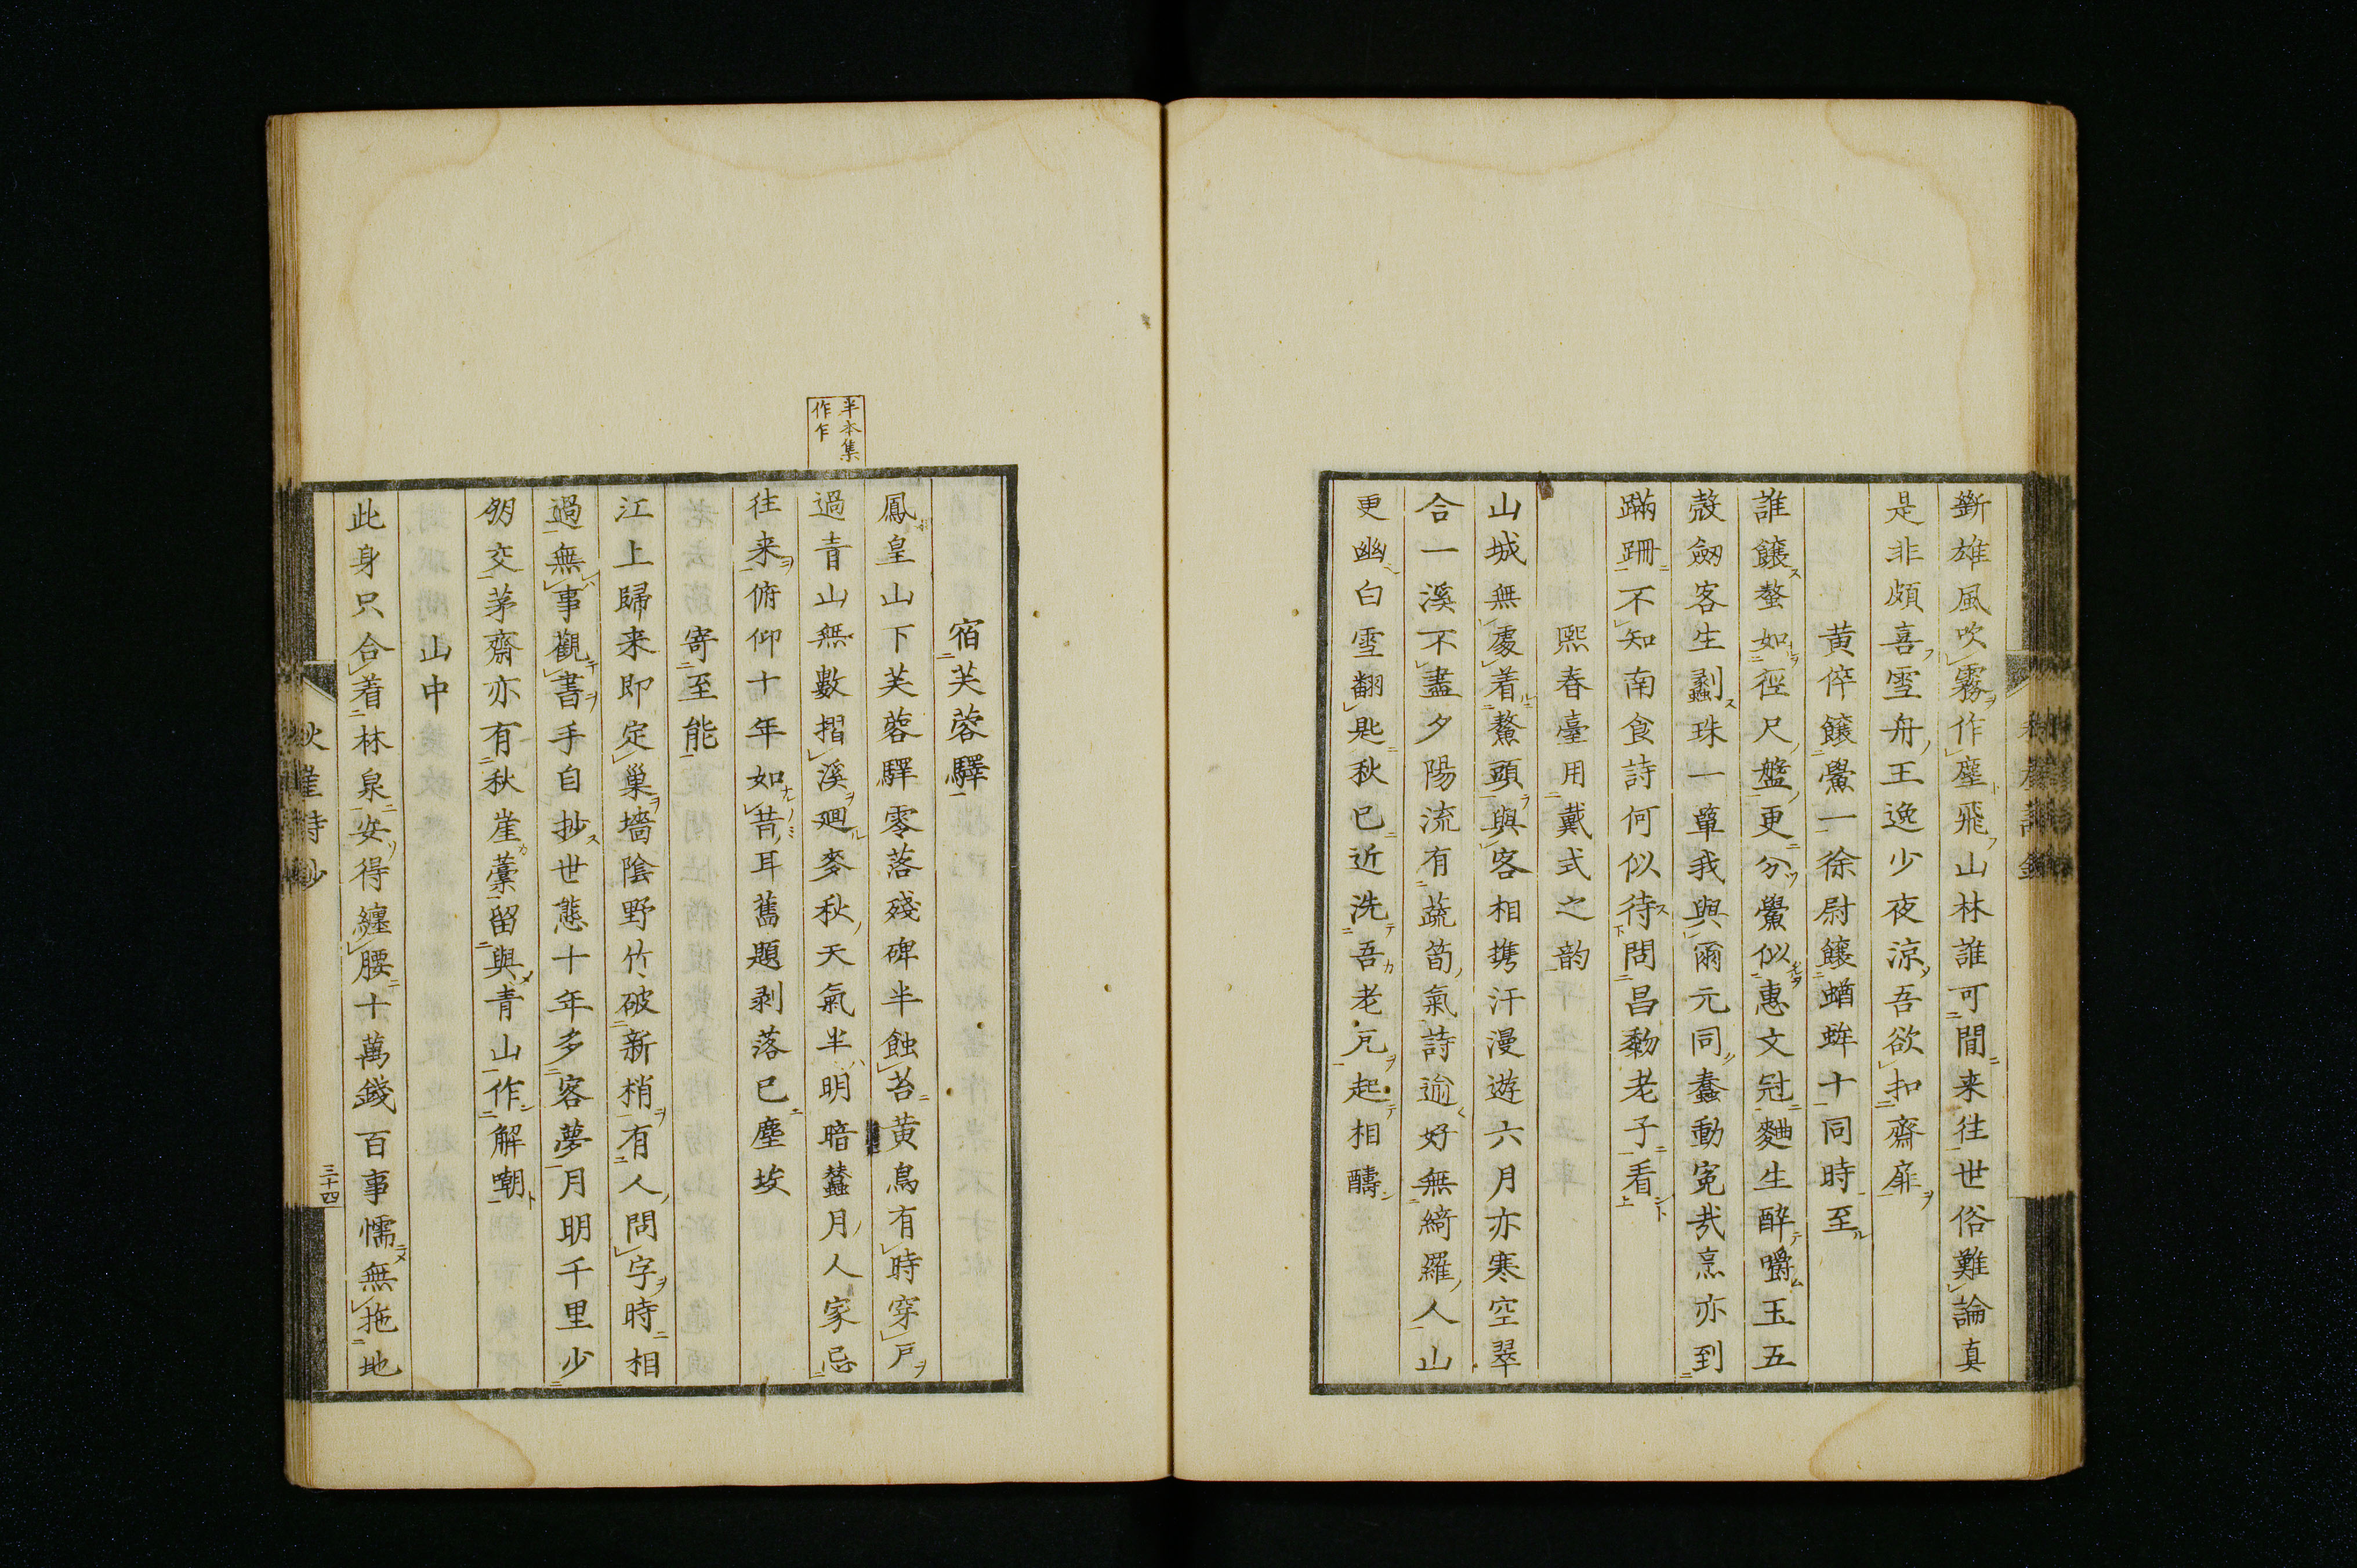 斷雄風吹霧作塵飛山林誰可間来往世俗難論真
是非頗喜雪舟王逸少夜涼吾欲扣齋扉
黄倅饟鱟一徐尉饟蝤蛑十同時至
誰饟螯如徑尺盤更分鱟似惠文冠麯生醉嚼玉五
殼劒客生剝珠一簞我與爾元同蠢動寃哉烹亦到
蹒跚不知南食詩何似待問昌黎老子看
熙春臺用戴式之韵
山城無處着鰲頭與客相携汗漫遊六月亦寒空翠
合一溪不盡夕陽流有蔬筍氣詩逾好無綺羅人山
更幽白雪翻匙秋已近洗吾老瓦起相醻
宿芙蓉驛
鳳皇山下芙蓉驛零落殘碑半蝕苔黄鳥有時穿戸
過青山無數摺溪廻麥秋天氣半明暗蠶月人家忌
半本集
作乍
往来俯仰十年如昔耳舊題剥落已塵埃
寄至能
江上歸来即定巢墻陰野竹破新梢有人問字時相
過無事觀書手自抄世態十年多客夢月明千里少
朋交茅齋亦有秋崖藁留與青山作解嘲
山中
此身只合着林泉安得纏腰十萬錢百事懦無拖地
秋崖詩鈔
三十四